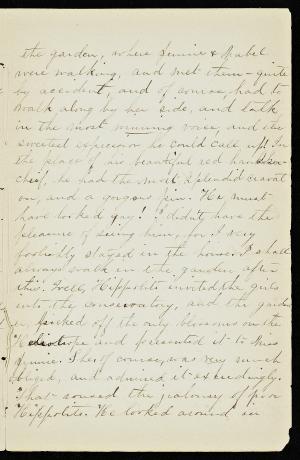 the garden, where Jennie & Mabel
were walking, and met them - quite
by accident, and of course, had to
walk along by her side, and talk
in the most winning voice, and the
sweetest expression he could call up! In
the place of his beautiful red handker-
chief, he had the most splendid cravat
on, and a gorgeous pin. He must
have looked gay! I didn't have the
pleasure of seeing him, for I very
foolishly stayed in the house. I shall
always walk in the garden after
this. Well, Hippolito invited the girls
into the conservatory, and the garden
er, picked off the only blossoms on the
Heliotrope and presented it to Miss
Jennie. She of course, was very much
obliged, and admired it exceedingly.
That roused the jealousy of poor
Hippolito. He looked around in